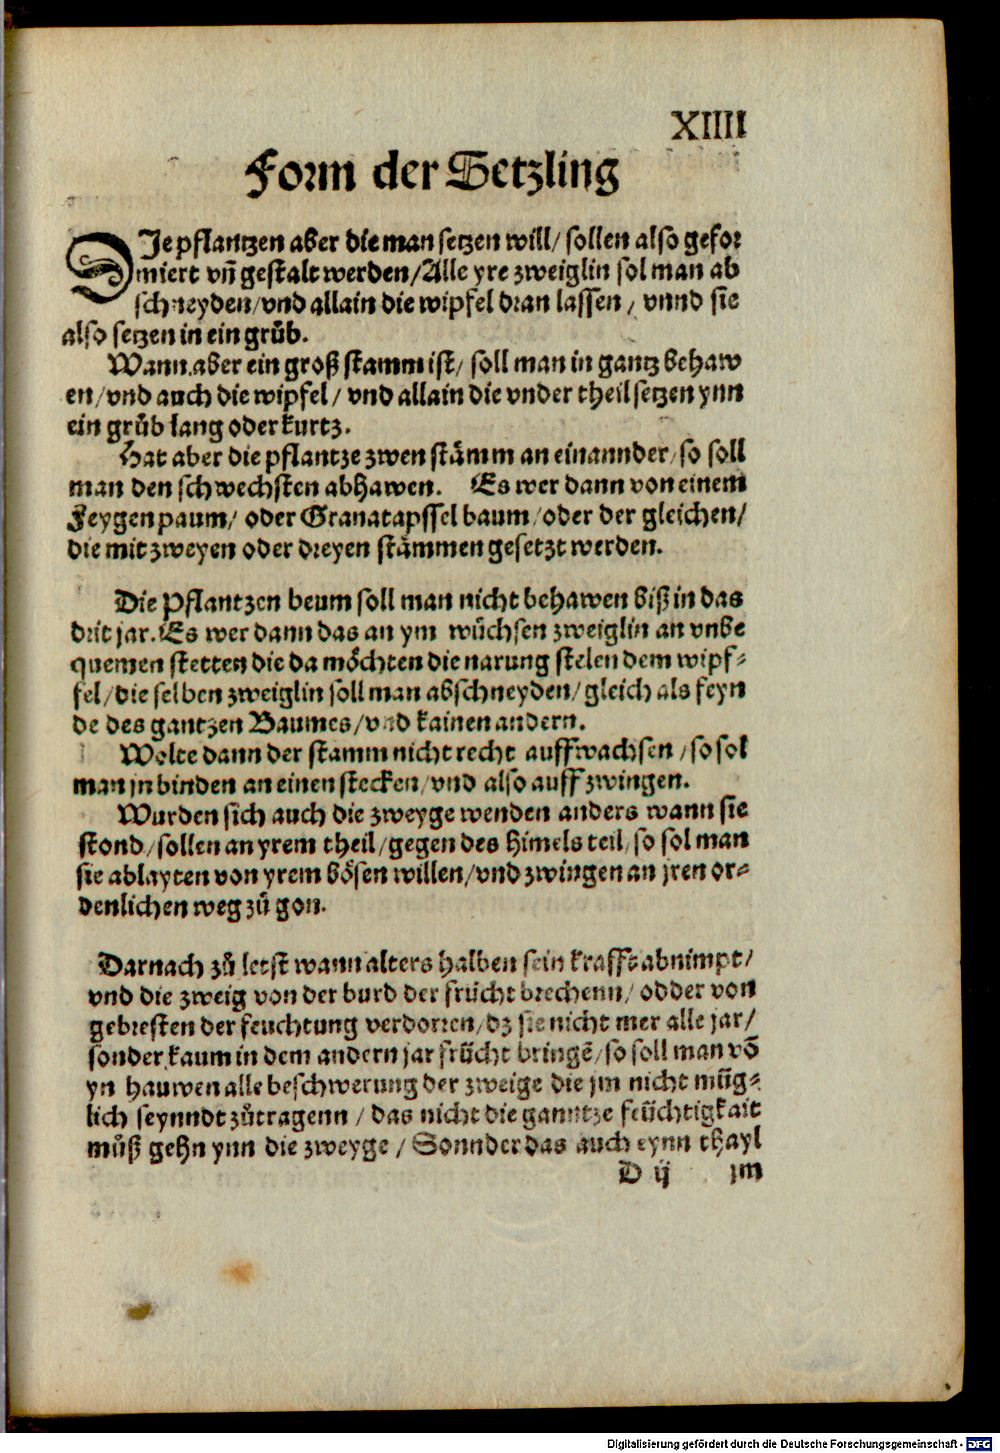 XIIII
Form der Setzling
DJe pflantzen aber die man setzen will/ sollen also gefor
miert vñ gestalt werden/Alle yre zweiglin sol man ab
schneyden/vnd allain die wipfel dran lassen / vnnd sie
also setzen in ein grůb.
Wann aber ein groß stamm ist/ soll man in gantz behaw
en/vnd auch die wipfel/ vnd allain die vnder theil setzen ynn
ein grůb lang oder kurtz.
Hat aber die pflantze zwen stämm an einannder/so soll
man den schwechsten abhawen. Es wer dann von einem
Feygenpaum/ oder Granatapffel baum/oder der gleichen/
die mit zweyen oder dreyen stämmen gesetzt werden.
Die Pflantzen beum soll man nicht behawen biß in das
drit jar. Es wer dann das an ym wůchsen zweiglin an vnbe
quemen stetten die da möchten die narung stelen dem wipf-
fel/die selben zweiglin soll man abschneyden/gleich als feyn
de des gantzen Baumes/vnd kainen andern.
Wolte dann der stamm nicht recht auffwachsen/so sol
man jn binden an einen stecken/vnd also auff zwingen.
Wurden sich auch die zweyge wenden anders wann sie
stond/sollen an yrem theil/gegen des himels teil/so sol man
sie ablayten von yrem bösen willen/vnd zwingen an jren or-
denlichen weg zů gon.
Darnach zů letst wann alters halben sein krafft abnimpt/
vnd die zweig von der burd der frücht brechenn/ odder von
gebresten der feuchtung verdorren/dz sie nicht mer alle jar/
sonder kaum in dem andern jar frücht bringẽ/so soll man võ
yn hauwen alle beschwerung der zweige die jm nicht müg-
lich seynndt zůtragenn / das nicht die ganntze feüchtigkait
můß gehn ynn die zweyge / Sonnder das auch eynn thayl
D ij jm
Digitalisierung gefördert durch die Deutsche Forschungsgemeinschaft - DFG